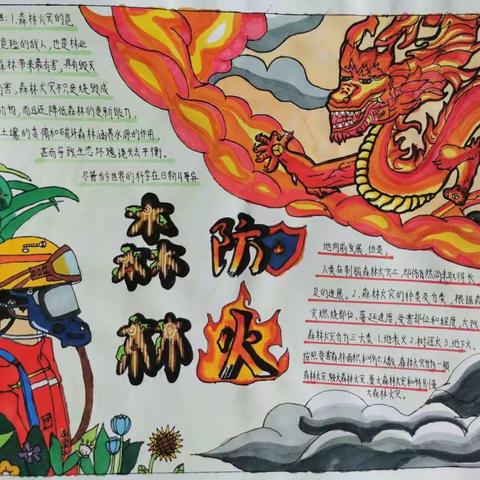 1.森林火灾的危
危险的敌人,也是林业
森林带来最有害,具有毁灭
有害,森林火灾不只是烧毁成
动物,而且还降低森林的更新能力,
土壤的贫瘠和破坏森林涵养水源的作用,
甚而导致生态环境失去平衡。
尽管当今世界的科学在日新月异
森林
防火
地向前发展,但是,
人类在制服森林火灾上,却依然尚未取得长
足的进展。2、森林火灾的种类及分类,根据森
灾燃烧部位,蔓延速度,受害部位和程度,大致
森林火灾分为三大类:1.地表火2.树冠火3.地下火。
按照受害森林面积和伤亡人数,森林火灾分为一般
森林火灾,较大森林火灾,重大森林火灾和特别重
大森林火灾。